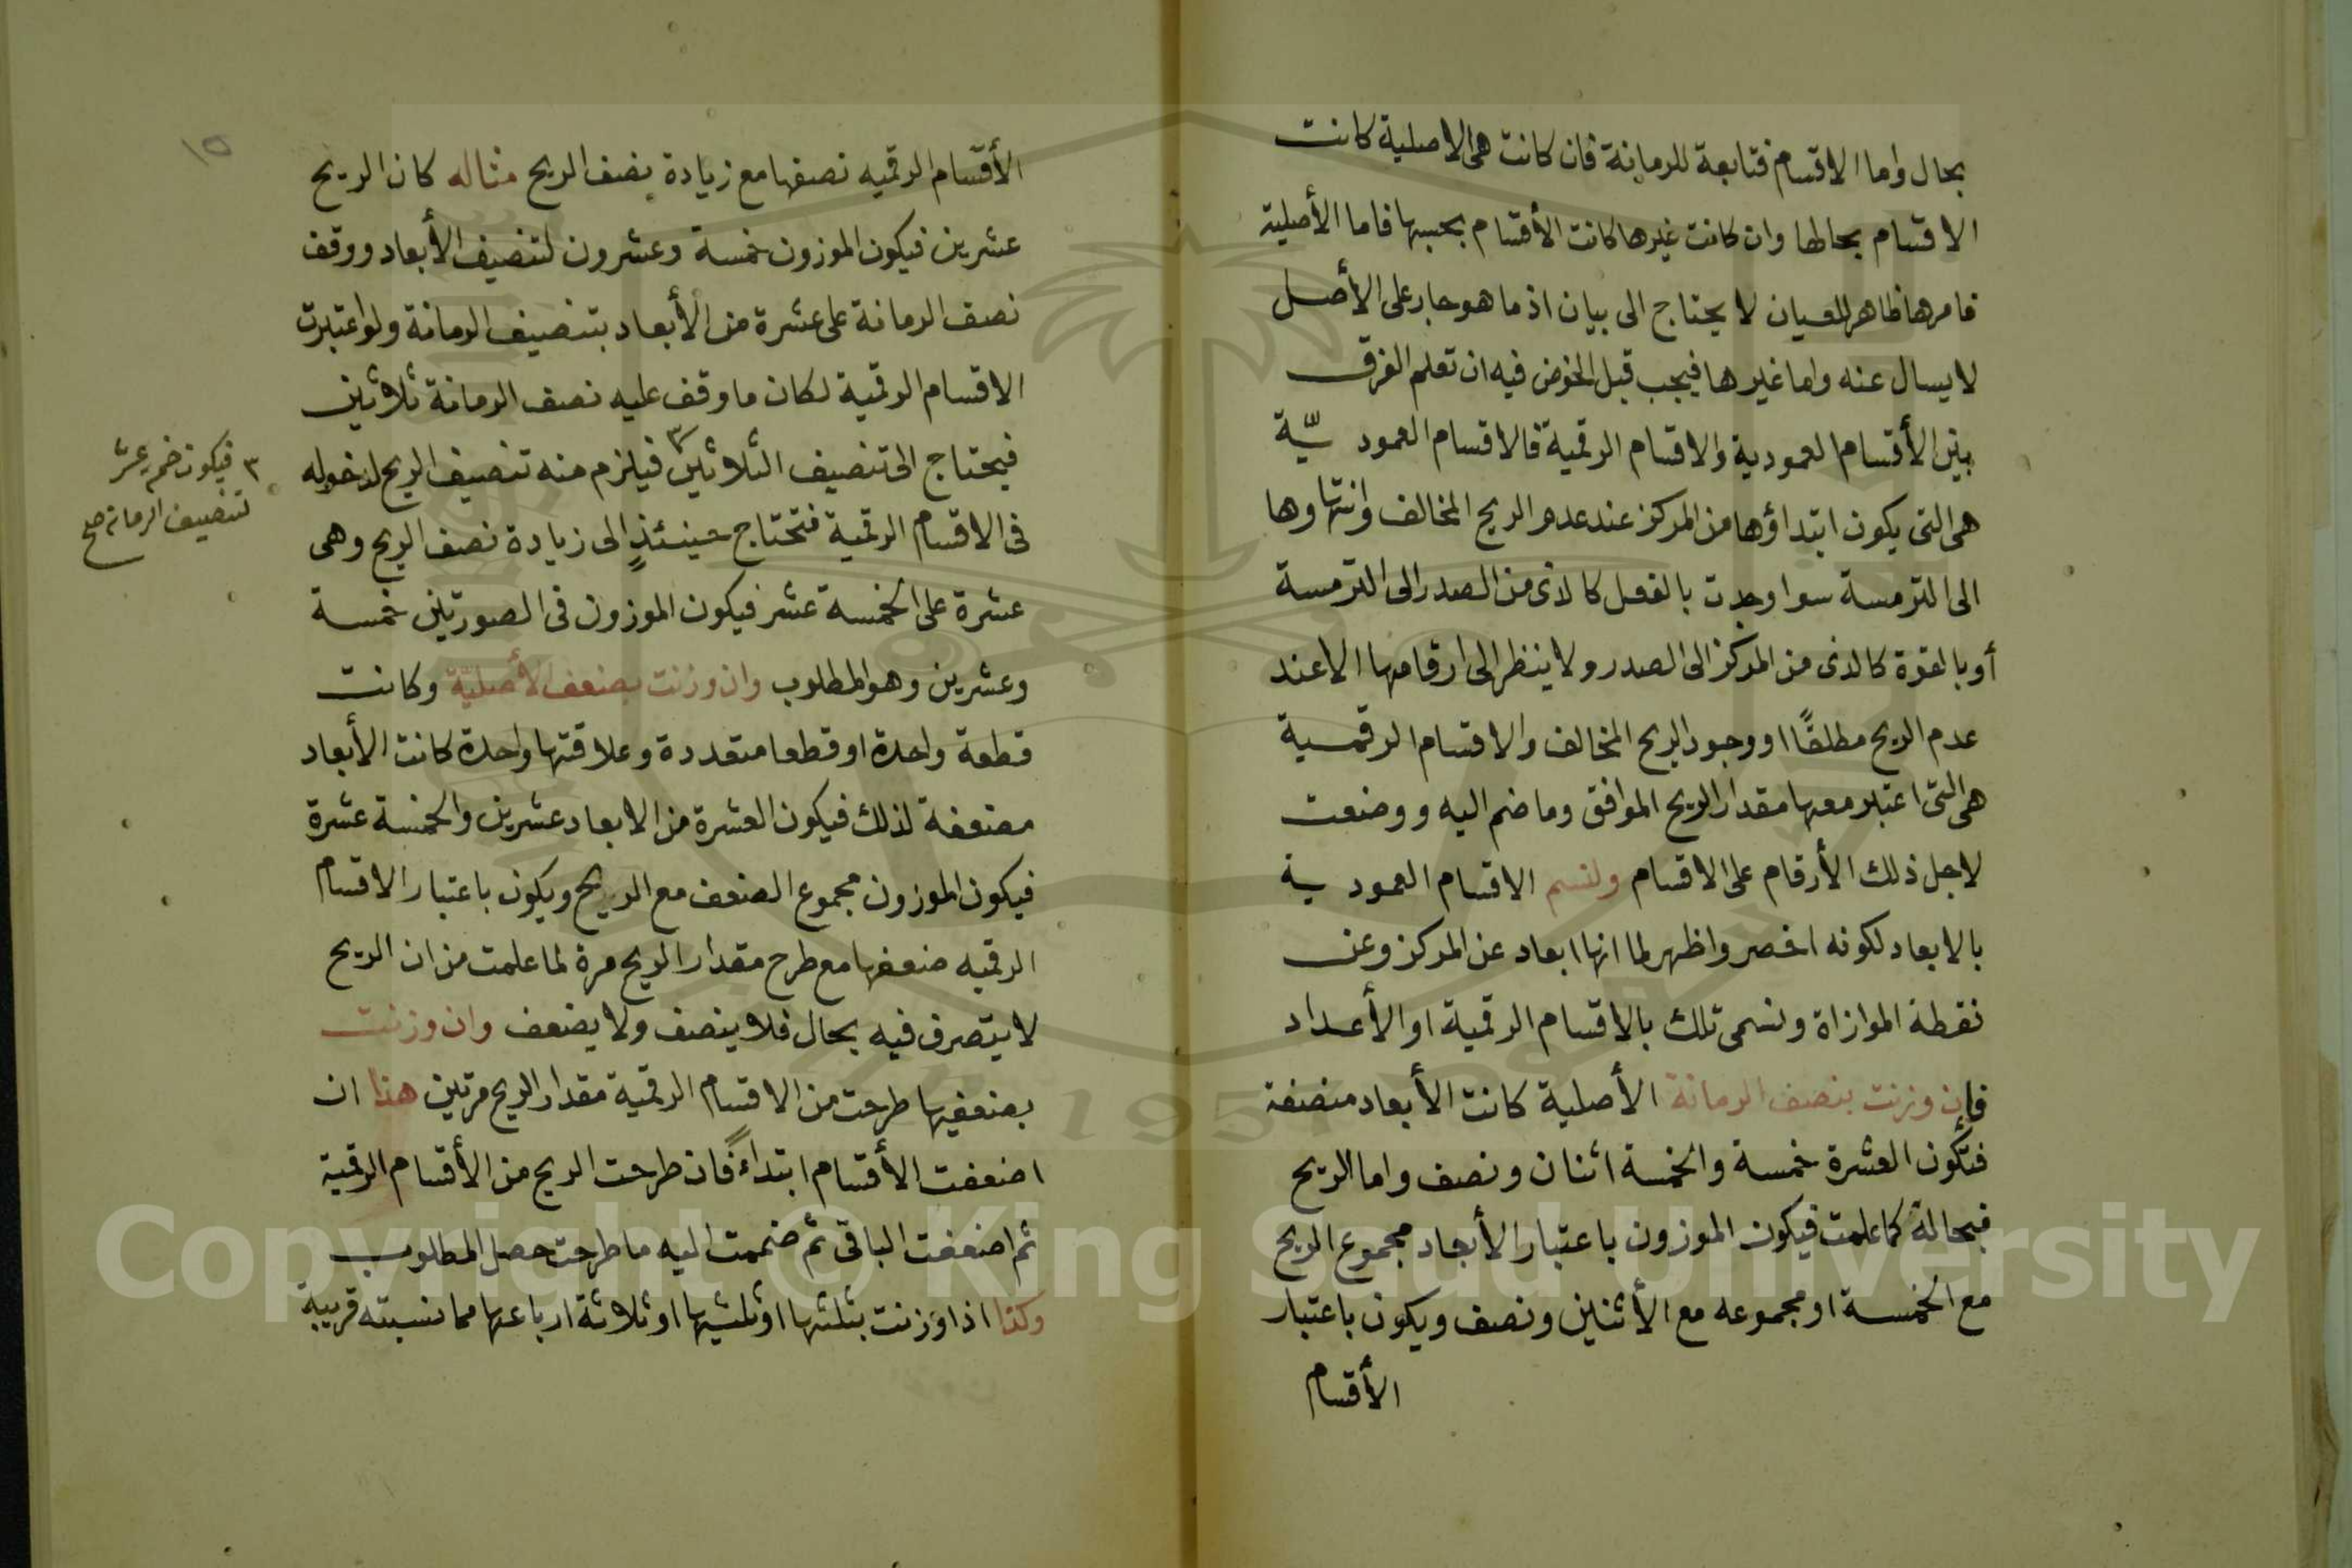 بحال واما الاقسام فتابعة للرمانة فان كانت هى الاصلية كانت
الاقسام بحالها وان كانت غيرها كانت الأقسام بحسبها فاما الأصلية
فامرها ظاهر للعيان لا يحتاج الى بيان اذ ما هو جار على الأصل
لا يسال عنه واما غيرها فيجب قبل الخوض فيه ان تعلم الفرق
بين الأقسام العمودية والاقسام الرقمية فالاقسام العموديّة
هى التى يكون ابتداؤها من المركز عند عدم الريح المخالف وانتهاوها
الى الترمسة سوا وجدت بالفعل كالذى من الصدر الى الترمسة
أو بالقوة كالذى من المركز الى الصدر ولا ينظر الى ارقامها الا عند
عدم الريح مطلقًا او وجود الريح المخالف والاقسام الرقمية
هى التى اعتبر معها مقدار الريح الموافق وما ضم اليه ووضعت
لاجل ذلك الأرقام على الاقسام ولنسم الاقسام العمودية
بالابعاد لكونه اخصر واظهر لما انها ابعاد عن المركز وعن
نقطة الموازاة ونسمى تلك بالاقسام الرقمية او الأعداد
فإن وزنت بنصف الرمانة الأصلية كانت الأبعاد منصفة
فتكون العشرة خمسة والخمسة اثنان ونصف واما الريح
فبحاله كما علمت فيكون الموزون باعتبار الأبعاد مجموع الريح
مع الخمسة او مجموعه مع الأثنين ونصف ويكون باعتبار
الأقسام
١٥
الأقسام الرقميه نصفها مع زيادة نصف الريح مثاله كان الريح
عشرين فيكون الموزون خمسة وعشرون لتنصيف الأبعاد ووقف
نصف الرمانة على عشرة من الأبعاد بتنصيف الرمانة ولو اعتبرت
الاقسام الرقمية لكان ما وقف عليه نصف الرمانة ثلاثين
فيحتاج الى تنصيف الثلاثين٣ فيلزم منه تنصيف الريح لدخوله
فى الاقسام الرقمية فتحتاج حينئذٍ الى زيادة نصف الريح وهى
عشرة على الخمسة عشر فيكون الموزون فى الصورتين خمسة
وعشرين وهو المطلوب وان وزنت بضعف الأصليّة وكانت
قطعة واحدة او قطعا متعددة وعلاقتها واحدة كانت الأبعاد
مضعفة لذلك فيكون العشرة من الابعاد عشرين والخمسة عشرة
فيكون الموزون مجموع الضعف مع الريح ويكون باعتبار الاقسام
الرقميه ضعفها مع طرح مقدار الريح مرة لما علمت من ان الريح
لا يتصرف فيه بحال فلا ينصف ولا يضعف وان وزنت
بضعفيها طرحت من الاقسام الرقمية مقدار الريح مرتين هذا ان
اضعفت الأقسام ابتداءً فان طرحت الريح من الأقسام الرقمية
ثم اضعفت الباقى ثم ضممت اليه ما طرحت حصل المطلوب
وكذا اذا وزنت بثلثها او ثلثيها او ثلاثة ارباعها مما نسبته قريبة
٣ فيكون خمسة عشر
لتنصيف الرمانة صح
Copyright © King Saud University
1957